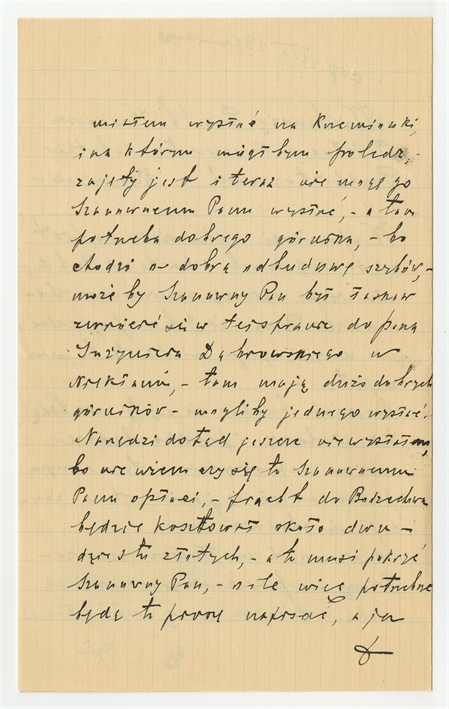 miałem wysłać na Krzemionki,
i na którym mógłbym poledz,
zajęty jest i teraz nie mogę go
Szanownemu Panu wysłać, - a tam
potrzeba dobrego górnika, - bo
chodzi o dobrą odbudowę szybów, -
może by Szanowny Pan był łaskaw
zwrócić się w tej sprawie do pana
Inżyniera Dąbrowskiego w
Niekłaniu, - tam mają dużo dobrych
górników - mogliby jednego wysłać.
Narzędzi dotąd jeszcze nie wysłałem,
bo nie wiem czy się to Szanownemu
Panu opłaci, - fracht do Bodzechowa
będzie kosztował około dwu-
dziestu złotych, - a to musi pokryć
Szanowny Pan, - o ile więc potrzebne
będą to proszę napisać, a ja